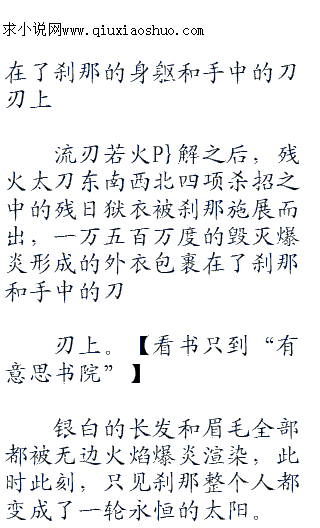 求小说网www.qiuxiaoshuo.com
在了刹那的身躯和手中的刀
刃上
流刃若火P}解之后，残
火太刀东南西北四项杀招之
中的残日狱衣被刹那施展而
出，一万五百万度的毁灭爆
炎形成的外衣包裹在了刹那
和手中的刀
刃上。【看书只到“有
意思书院”】
银白的长发和眉毛全部
都被无边火焰爆炎渲染，此
时此刻，只见刹那整个人都
变成了一轮永恒的太阳。